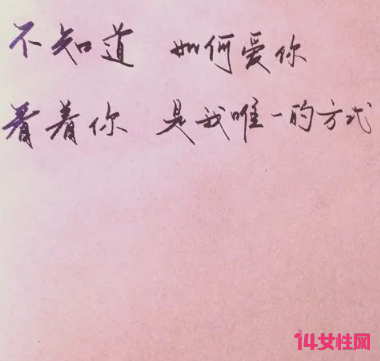 不知道 如何爱你
看着你 是我唯一的方式
14女性网